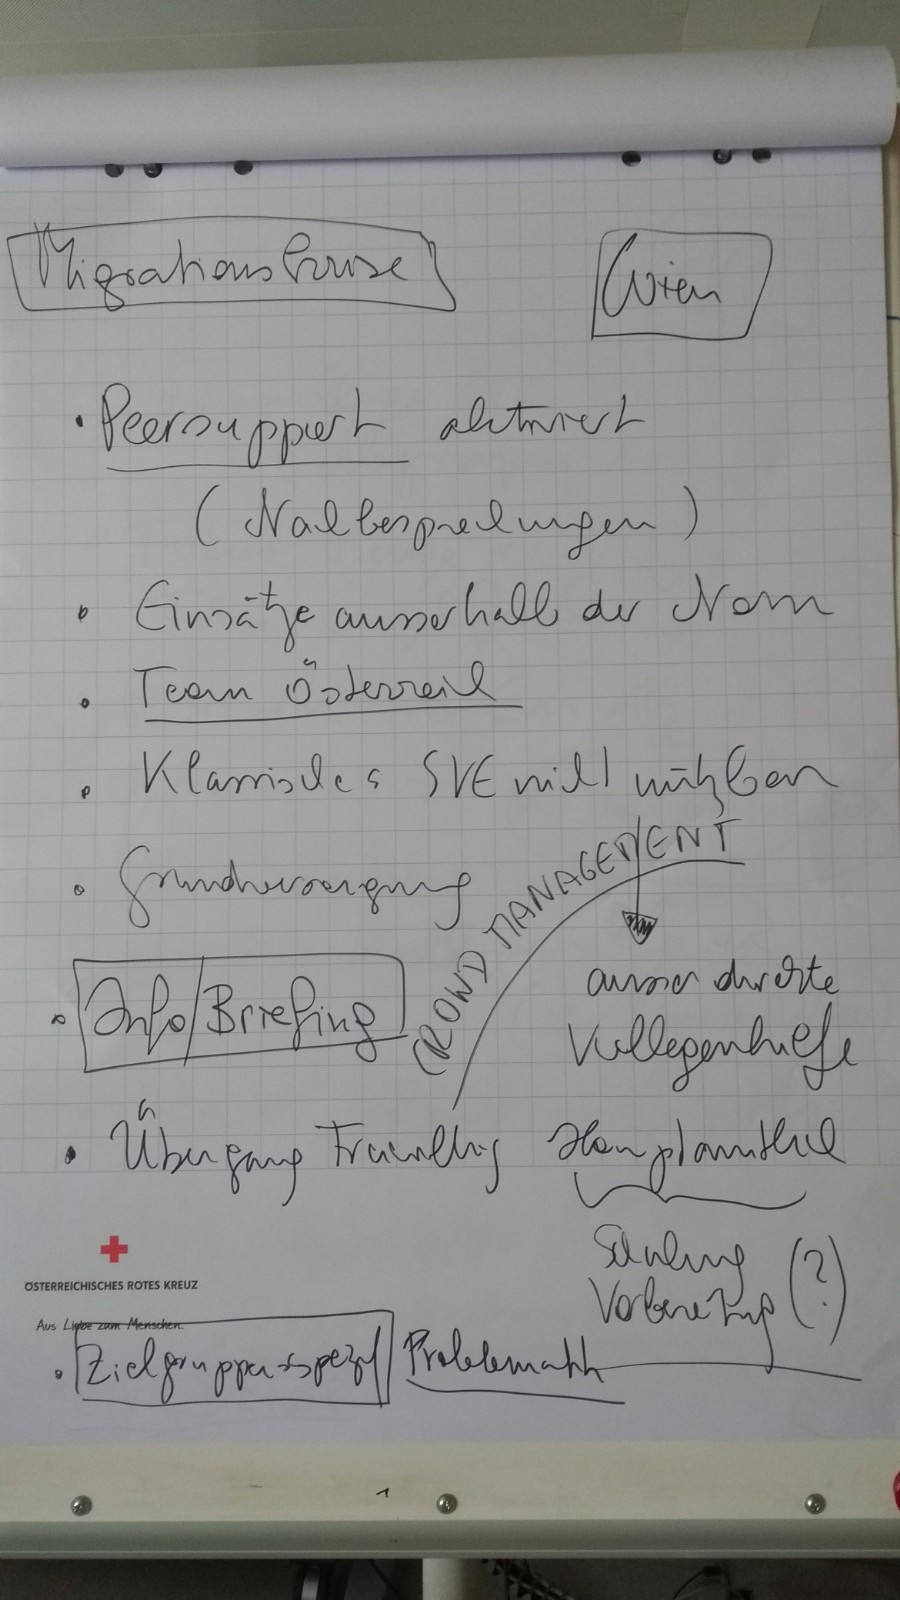 Migrationskrise
Wien
• Peersupport aktiviert
(Nachbesprechungen)
• Einsätze ausserhalb der Norm
• Team Österreich
• Klassisches SVE nicht nützbar
• Grundversorgung
CROWD MANAGEMENT
ausser direkte
Kollegenhilfe
• Info/Briefing
• Übergang Freiwillig Hauptamtlich
Schulung
Vorbereitung (?)
ÖSTERREICHISCHES ROTES KREUZ
Aus Liebe zum Menschen.
• Zielgruppenspezif Problematik